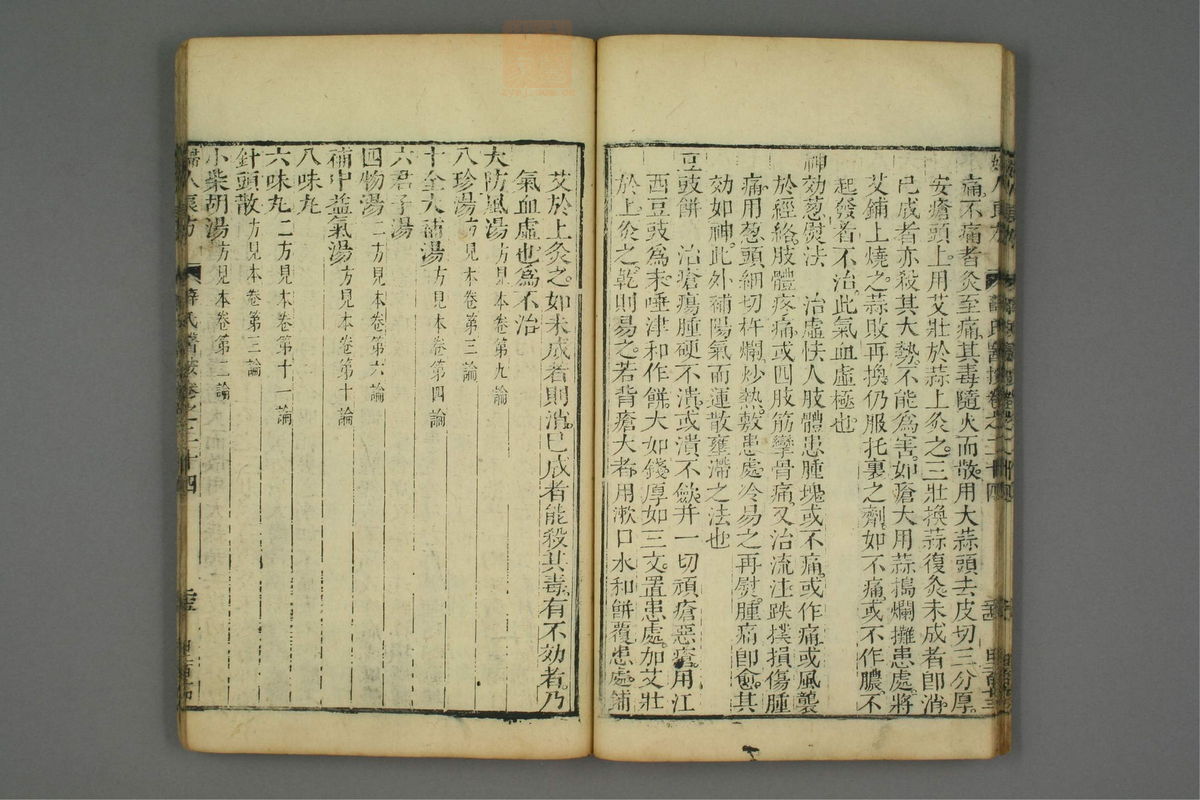 痛不痛者灸至痛其毒隨火而散用大蒜頭去皮切三分厚
安瘡頭上用艾壯於蒜上灸之三壯換蒜復灸未成者卽消
已成者亦殺其大勢不能爲害如瘡大用蒜搗爛攤患處將
艾鋪上燒之蒜敗再換仍服托裏之劑如不痛或不作膿不
起發者不治此氣血虛極也
神効葱熨法　治虛怯人肢體患腫塊或不痛或作痛或風襲
於經絡肢體疼痛或四肢筋攣骨痛又治流注跌撲損傷腫
痛用葱頭細切杵爛炒熱敷患處冷易之再熨腫痛卽愈其
効如神此外補陽氣而運散壅滯之法也
豆豉餅　治瘡瘍腫硬不潰或潰不斂并一切頑瘡惡瘡用江
西豆豉爲末唾津和作餅大如錢厚如三文置患處加艾壯
於上灸之乾則易之若背瘡大者用漱口水和餅覆患處鋪
艾於上灸之如未成者則消已成者能殺其毒有不効者乃
氣血虛也爲不治
大防風湯方見本卷第九論
八珍湯方見本卷第三論
十全大補湯方見本卷第四論
六君子湯
四物湯二方見本卷第六論
補中益氣湯方見本卷第十論
八味丸
六味丸二方見本卷第十一論
針頭散方見本卷第三論
小柴胡湯方見本卷第二論
婦人良方　薛氏醫按卷之二十四